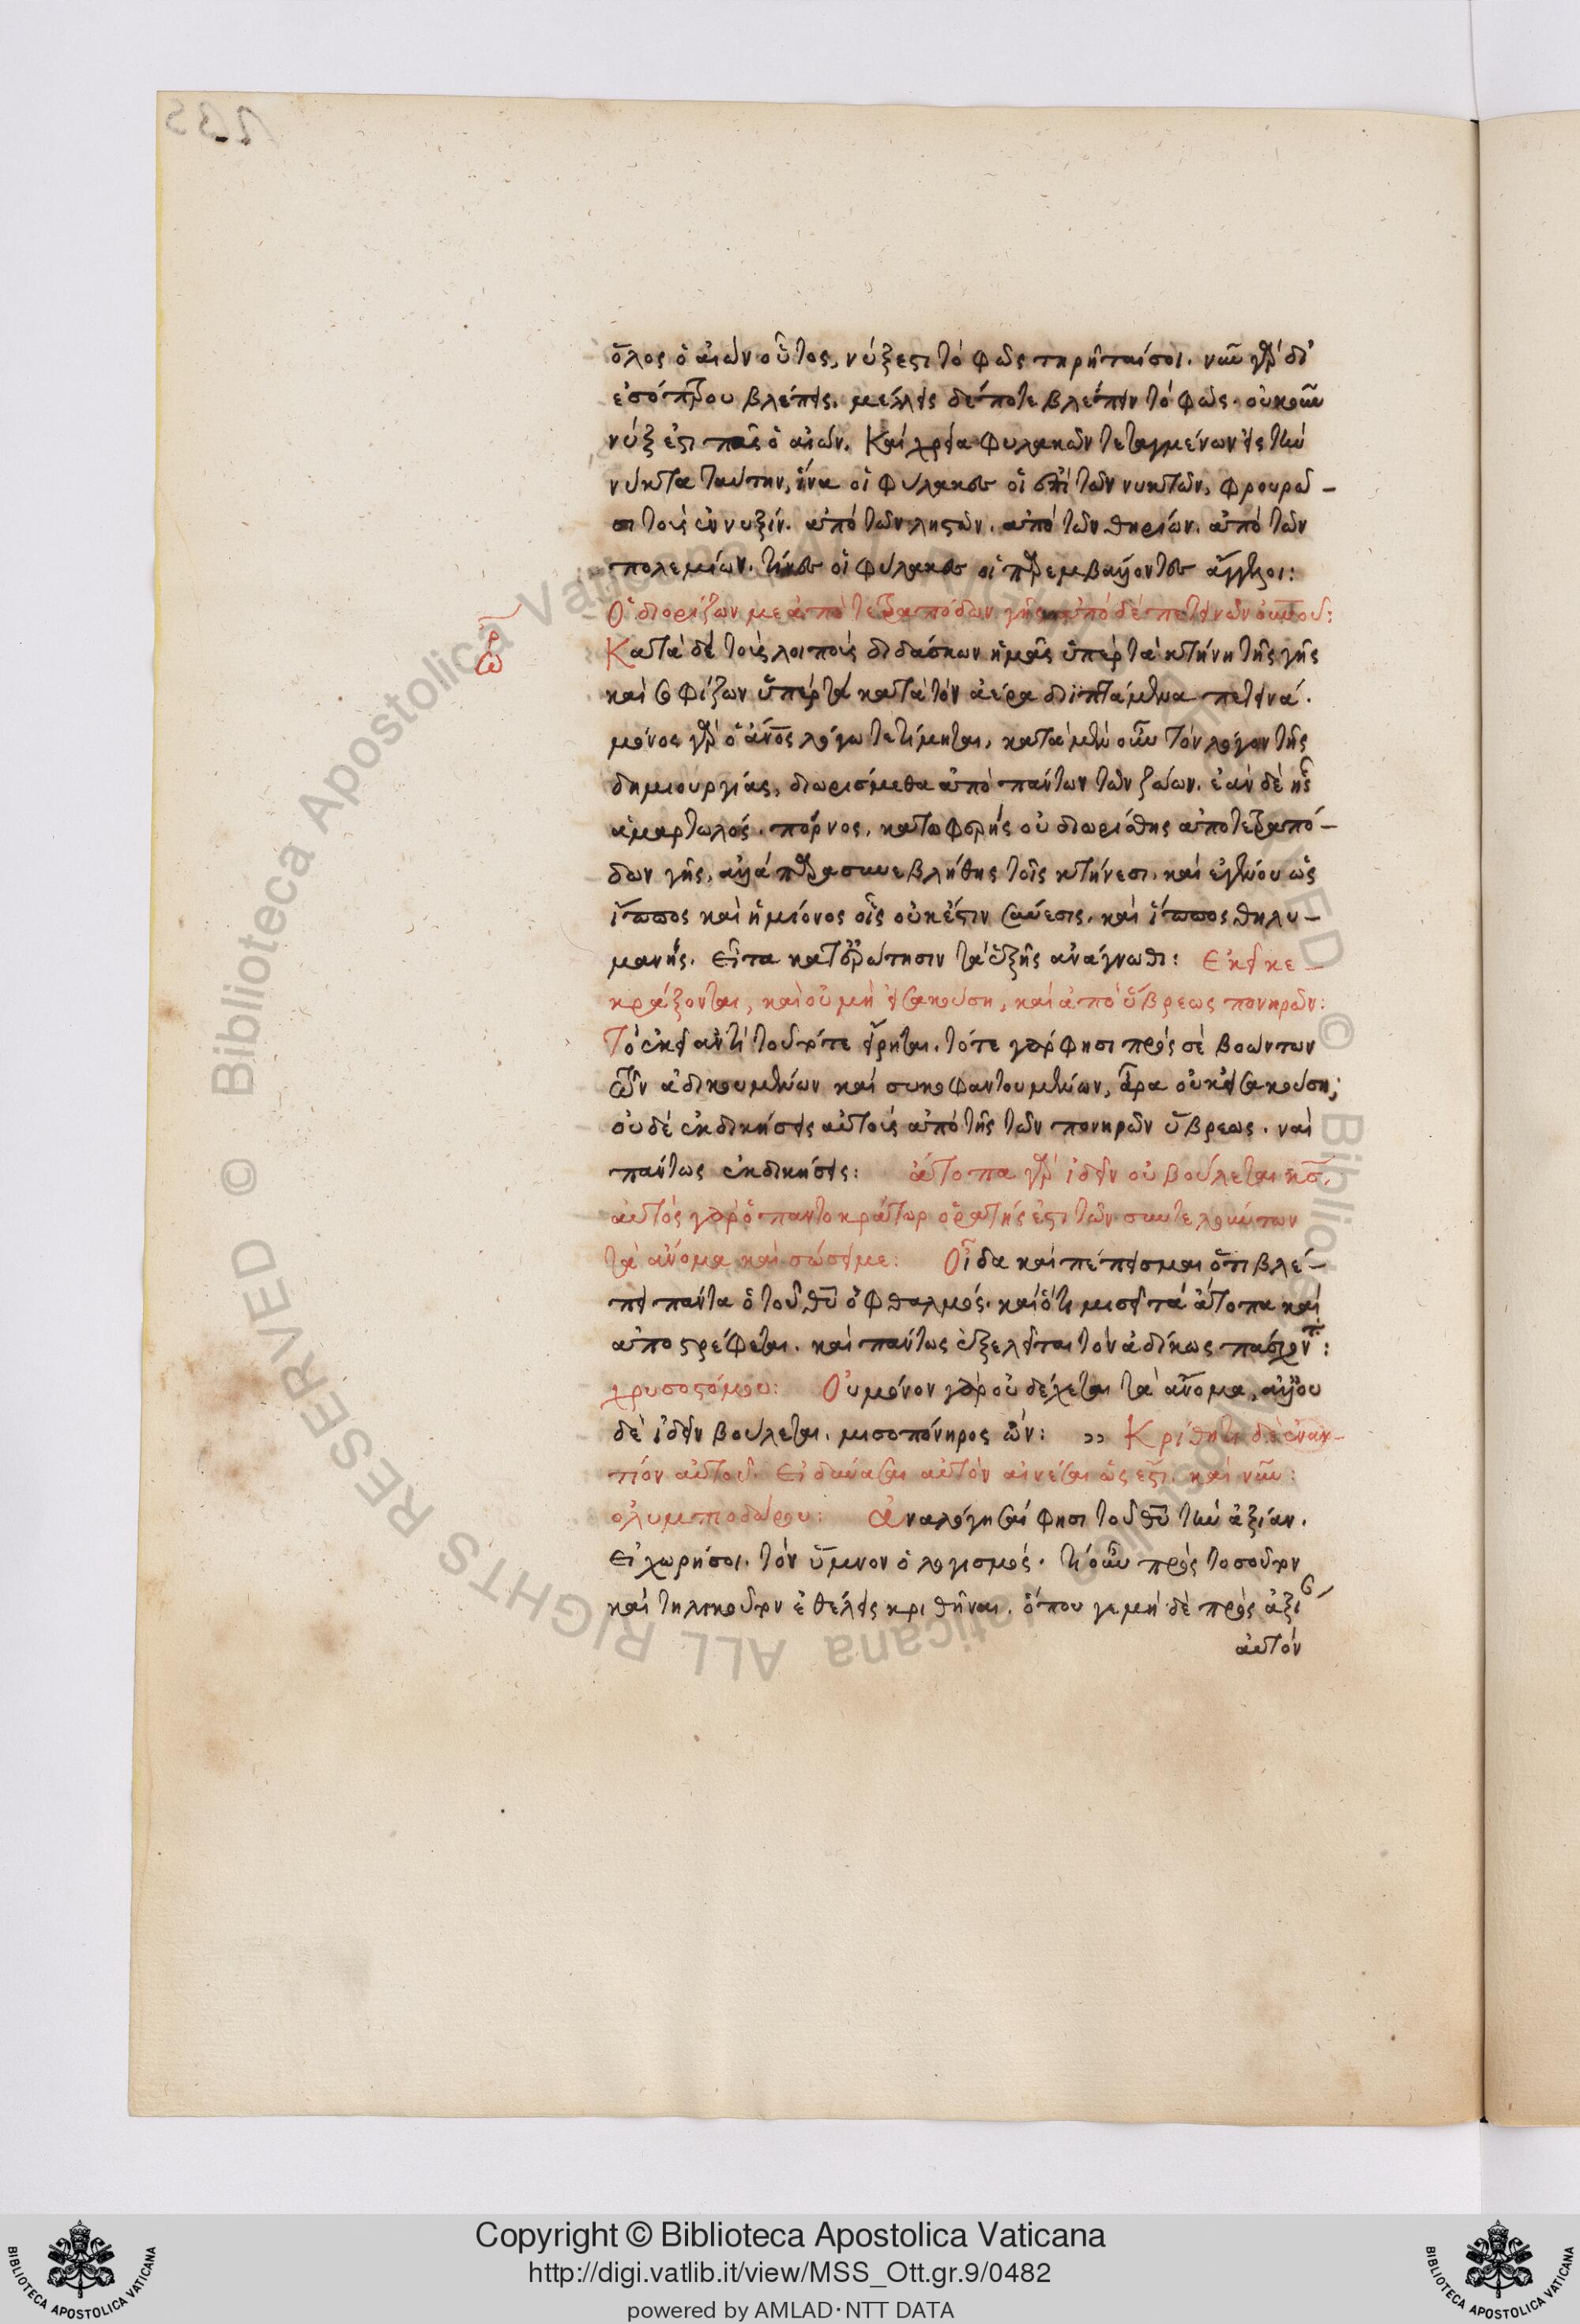 ὅλος ὁ αἰὼν οὗτος, νύξ ἐστι τὸ φῶς τηρεῖταί σοι. νῦν γὰρ δι'
ἐσόπτρου βλέπεις. μέλλεις δέ ποτε βλέπειν τὸ φῶς. οὐκοῦν
νύξ ἐστι πᾶς ὁ αἰών. Καὶ χρεία φυλακῶν τεταγμένων εἰς τὴν
νύκτα ταύτην, ἵνα οἱ φύλακες οἱ ἐπὶ τῶν νυκτῶν, φρουρῶ-
σι τοὺς ἐν νυξίν. ἀπὸ τῶν ληστῶν. ἀπὸ τῶν θηρίων. ἀπὸ τῶν
πολεμίων. τίνες οἱ φύλακες οἱ παρεμβαλλοντες ἄγγελοι:
Ὁ διορίζων με ἀπὸ τετραπόδων γῆς ἀπὸ δὲ πετεινῶν οὐνου:
Κατὰ δὲ τοὺς λοιποὺς διδάσκων ἡμᾶς ὑπὲρ τὰ κτήνη τῆς γῆς
καὶ σοφίζων ὑπὲρ τὰ κατὰ τὸν ἀέρα διϊπτάμενα πετεινά.
μόνος γὰρ ὁ ἄνος λόγω τετίμηται, κατὰ μὲν οὖν τὸν λόγον τῆς
δημιουργίας, διωρίσμεθα ἀπὸ πάντων τῶν ζώων. ἐὰν δὲ ἦς
ἁμαρτωλός. πόρνος, κατωφερὴς οὐ διωρίσθης ἀπὸ τετραπό-
δων γῆς, ἀλλὰ παρασυνεβλήθης τοῖς κτήνεσι. καὶ ἐγένου ὡς
ἵππος καὶ ἡμίονος οἷς οὐκ ἔστιν σύνεσις. καὶ ἵππος θηλυ-
μανής. εἶτα κατ' ἐρώτησιν τὰ ἑξῆς ἀνάγνωθι: Ἐκεῖ κε-
κράξονται, καὶ οὐ μὴ εἰσακούση, καὶ ἀπὸ ὕβρεως πονηρῶν:
Τὸ ἐκεῖ ἀντὶ τοῦ τότε εἴρηται. τότε γάρ φησι πρὸς σὲ βοώντων
τῶν ἀδικουμένων καὶ συκοφαντουμένων, ἆρα οὐκ εἰσακούση;
οὐδὲ ἐκδικήσεις αὐτοὺς ἀπὸ τῆς τῶν πονηρῶν ὕβρεως. ναὶ
πάντως ἐκδικήσεις: ἄτοπα γὰρ ἰδεῖν οὐ βούλεται κς.
αὐτὸς γὰρ ὁ παντοκράτωρ ὁρατής ἐστι τῶν συντελούντων
τὰ ἄνομα καὶ σώσει με: Οἶδα καὶ πέπεισμαι ὅτι βλέ-
πει πάντα ὁ τοῦ θυ ὀφθαλμός. καὶ ὅτι μισεῖ τὰ ἄτοπα καὶ
ἀποστρέφεται. καὶ πάντως ἐξελεῖται τὸν ἀδίκως πάσχοντ:
χρυσοστόμου: Οὐ μόνον γὰρ οὐ δέχεται τὰ ἄνομα, ἀλλ' οὐ
δὲ ἰδεῖν βούλεται. μισοπόνηρος ὤν: ,, Κρίθητι δὲ ἐναν-
τίον αὐτοῦ. Εἰ δύνασαι αὐτὸν αἰνέσαι ὡς ἔστι. καὶ νῦν:
ὀλυμπιοδώρου: ἀναλόγησαί φησι τοῦ θυ τὴν ἀξίαν.
εἰ χωρήσοι. τὸν ὕμνον ὁ λογισμός. τί οὖν πρὸς τοσοῦτον
καὶ τηλικοῦτον ἐθέλεις κριθῆναι. ὅπου γε μὴ δὲ πρὸς ἀξί
αὐτὸν
Copyright © Biblioteca Apostolica Vaticana
http://digi.vatlib.it/view/MSS_Ott.gr.9/0482
powered by AMLAD·NTT DATA